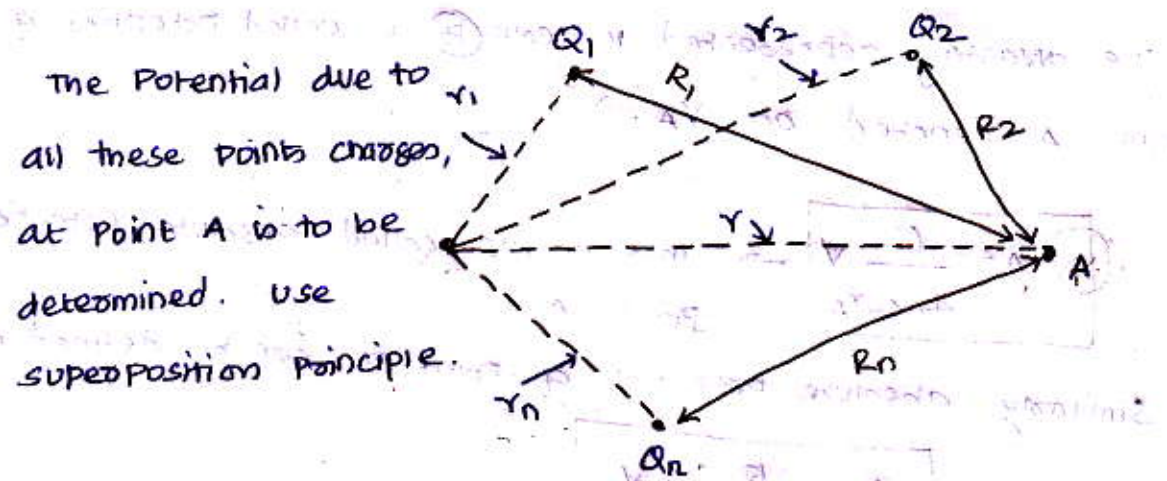 The Potential due to
all these points charges,
at point A is to be
determined. use
superposition principle.
Q1
r2
Q2
r1
R1
R2
r
A
Rn
rn
Qn.